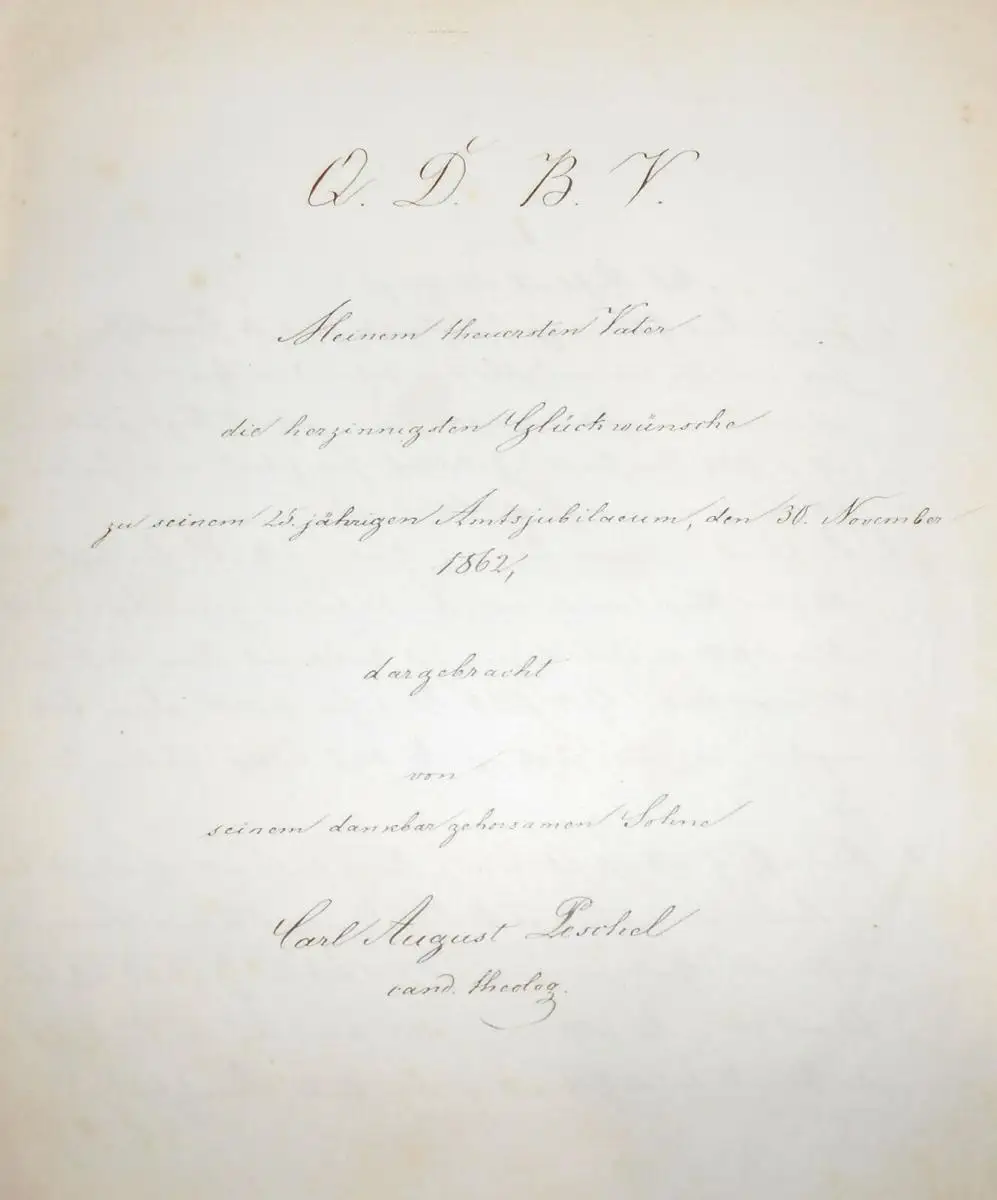 Q. D. B. V.
Meinem theuersten Vater
die herzinnigsten Glückwünsche
zu seinem 25. jährigen Amtsjubilaeum, den 30. November
1862,
dargebracht
von
seinem dankbar gehorsamen Sohne
Carl August Peschel
cand. theolog.